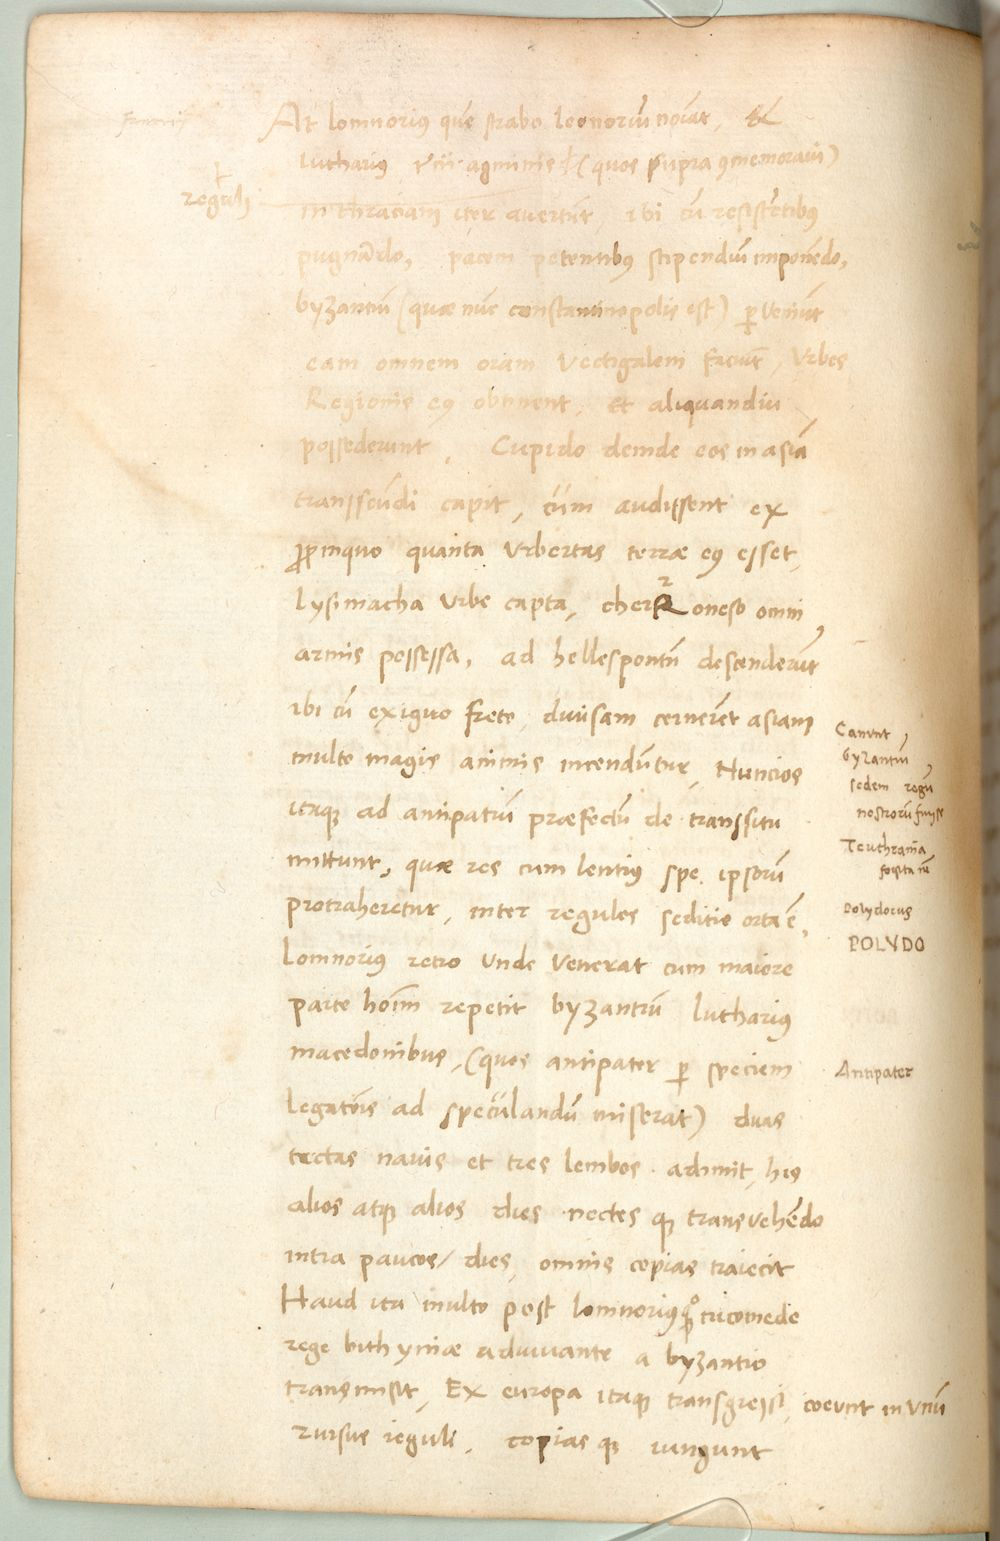 At lomnorius quē strabo leonoriū nōīat, &
lutharius agminis (quos supra ꝯmemoraui)
reguli
in thraciam iter auertūt, ibi cū resistētibus
pugnādo, pacem petentibus stipendiū imponēdo,
byzantiū (quæ nūc constantinopolis est) ꝑueniūt
eam omnem oram vectigalem Vrbes
Regionis eius obtinent, et aliquandiu
possederunt, Cupido deinde eos in asiā
transseūdi capit, cūm audissent ex
ꝓpinquo quanta vbertas terræ eius esset,
lysimacha vrbe capta, cherRoneso omni
armis possessa, ad hellespontū descenderūt
ibi cū exiguo freto diuisam cernerēt asiam
multo magis animis incendūtur, Nuncios
itaqꝫ ad antipatrū præfectū de transsitu
mittunt, quæ res cum lentius spe ipsorū
protraheretur, inter regulos seditio orta ē,
Lomnorius retro vnde venerat cum maiore
parte hoīm repetit byzantiū lutharius
macedonibus, (quos antipater ꝑ speciem
legatōis ad speculandū miserat) duas
tectas nauis et tres lembos adimit, his
alios atqꝫ alios dies noctes qꝫ transvehēdo
intra paucos / dies, omnis copias traiecit
Haud ita multo post lomnorius nicomede
rege bithyniæ adiuuante a byzantio
transmisit, Ex europa itaqꝫ transgressi, coeunt in vnū
rursus reguli, copias qꝫ iungunt
Canunt
byzantiū
sedem regū
nostrorū fuisse
Teuthrania
Polydorus
POLYDO
Antipater